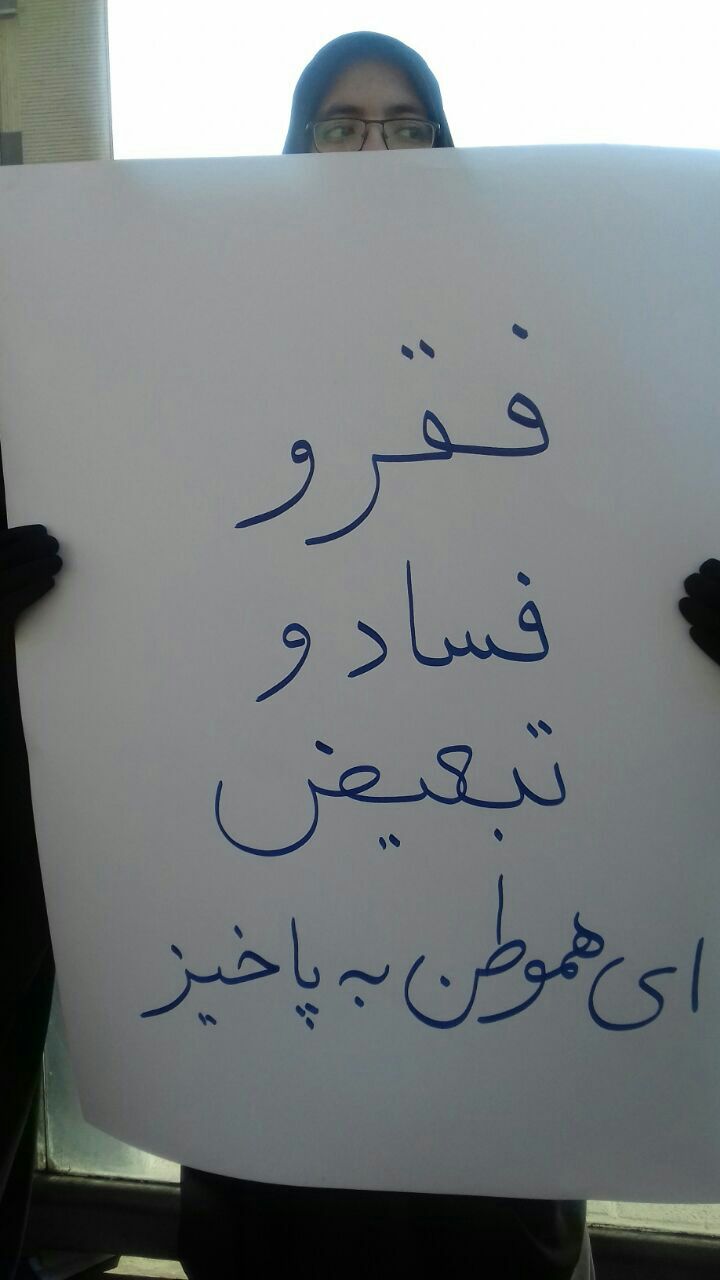 فقر و
فساد و
تبعیض
ای هموطن به پا خیز